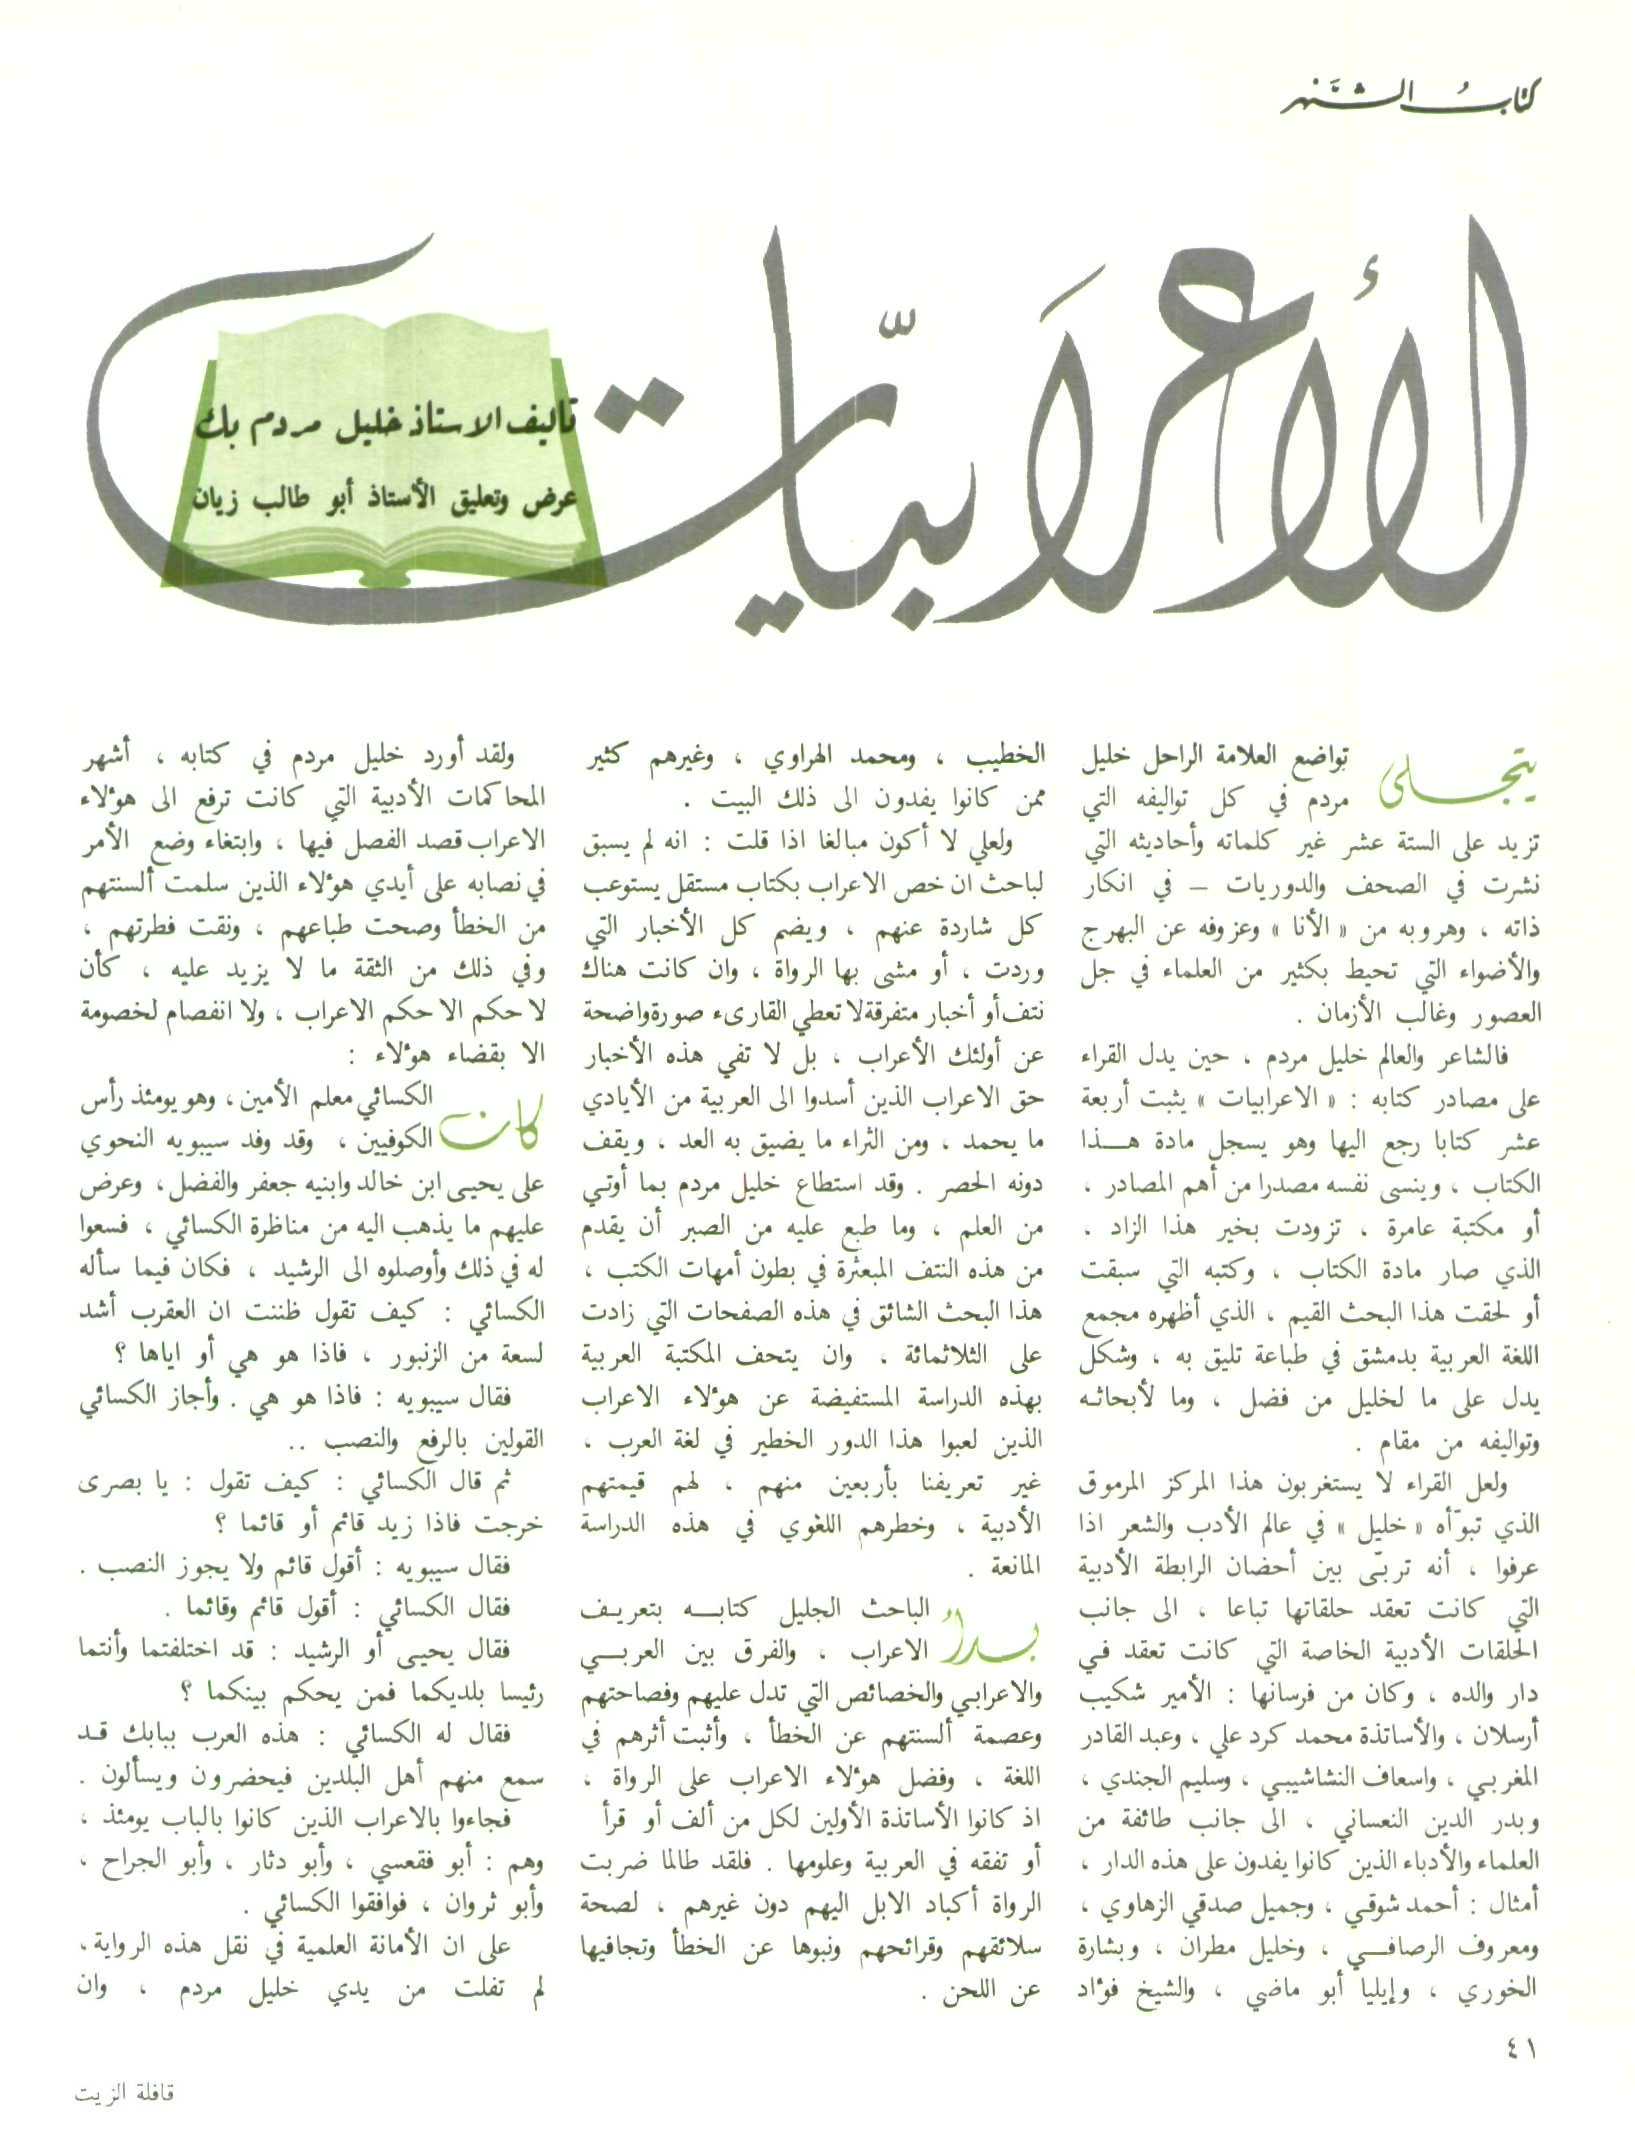 كتاب الشهر
الأعرابيات
تأليف الاستاذ خليل مردم بك
عرض وتعليق الأستاذ أبو طالب زيان
يتجلى تواضع العلامة الراحل خليل
مردم في كل تواليفه التي
تزيد على الستة عشر غير كلماته وأحاديثه التي
نشرت في الصحف والدوريات – في انكار
ذاته ، وهروبه من « الأنا » وعزوفه عن البهرج
والأضواء التي تحيط بكثير من العلماء في جل
العصور وغالب الأزمان .
فالشاعر والعالم خليل مردم ، حين يدل القراء
على مصادر كتابه : « الاعرابيات » يثبت أربعة
عشر كتابا رجع اليها وهو يسجل مادة هذا
الكتاب ، وينسى نفسه مصدرا من أهم المصادر ،
أو مكتبة عامرة ، تزودت بخير هذا الزاد ،
الذي صار مادة الكتاب ، وكتبه التي سبقت
أو لحقت هذا البحث القيم ، الذي أظهره مجمع
اللغة العربية بدمشق في طباعة تليق به ، وشكل
يدل على ما لخليل من فضل ، وما لأبحاثه
وتواليفه من مقام .
ولعل القراء لا يستغربون هذا المركز المرموق
الذي تبوّأه « خليل » في عالم الأدب والشعر اذا
عرفوا ، أنه تربّى بين أحضان الرابطة الأدبية
التي كانت تعقد حلقاتها تباعا ، الى جانب
الحلقات الأدبية الخاصة التي كانت تعقد في
دار والده ، وكان من فرسانها : الأمير شكيب
أرسلان ، والأساتذة محمد كرد علي ، وعبد القادر
المغربي ، واسعاف النشاشيبي ، وسليم الجندي ،
وبدر الدين النعساني ، الى جانب طائفة من
العلماء والأدباء الذين كانوا يفدون على هذه الدار ،
أمثال : أحمد شوقي ، وجميل صدقي الزهاوي ،
ومعروف الرصافي ، وخليل مطران ، وبشارة
الخوري ، وإيليا أبو ماضي ، والشيخ فؤاد
الخطيب ، ومحمد الهراوي ، وغيرهم كثير
ممن كانوا يفدون الى ذلك البيت .
ولعلي لا أكون مبالغا اذا قلت : انه لم يسبق
لباحث ان خص الاعراب بكتاب مستقل يستوعب
كل شاردة عنهم ، ويضم كل الأخبار التي
وردت ، أو مشى بها الرواة ، وان كانت هناك
نتف أو أخبار متفرقة لا تعطي القارىء صورة واضحة
عن أولئك الأعراب ، بل لا تفي هذه الأخبار
حق الاعراب الذين أسدوا الى العربية من الأيادي
ما يحمد ، ومن الثراء ما يضيق به العد ، ويقف
دونه الحصر . وقد استطاع خليل مردم بما أوتي
من العلم ، وما طبع عليه من الصبر أن يقدم
من هذه النتف المبعثرة في بطون أمهات الكتب ،
هذا البحث الشائق في هذه الصفحات التي زادت
على الثلاثمائة ، وان يتحف المكتبة العربية
بهذه الدراسة المستفيضة عن هؤلاء الاعراب
الذين لعبوا هذا الدور الخطير في لغة العرب ،
غير تعريفنا بأربعين منهم ، لهم قيمتهم
الأدبية ، وخطرهم اللغوي في هذه الدراسة
المانعة .
بدأ الباحث الجليل كتابه بتعريف
الاعراب ، والفرق بين العربي
والاعرابي والخصائص التي تدل عليهم وفصاحتهم
وعصمة ألسنتهم عن الخطأ ، وأثبت أثرهم في
اللغة ، وفضل هؤلاء الاعراب على الرواة ،
اذ كانوا الأساتذة الأولين لكل من ألف أو قرأ
أو تفقه في العربية وعلومها . فلقد طالما ضربت
الرواة أكباد الابل اليهم دون غيرهم ، لصحة
سلائقهم وقرائحهم ونبوها عن الخطأ وتجافيها
عن اللحن .
ولقد أورد خليل مردم في كتابه ، أشهر
المحاكمات الأدبية التي كانت ترفع الى هؤلاء
الاعراب قصد الفصل فيها ، وابتغاء وضع الأمر
في نصابه على أيدي هؤلاء الذين سلمت ألسنتهم
من الخطأ وصحت طباعهم ، ونقت فطرتهم ،
وفي ذلك من الثقة ما لا يزيد عليه ، كأن
لا حكم الا حكم الاعراب ، ولا انفصام لخصومة
الا بقضاء هؤلاء :
كان الكسائي معلم الأمين ، وهو يومئذ رأس
الكوفيين ، وقد وفد سيبويه النحوي
على يحيى ابن خالد وابنيه جعفر والفضل ، وعرض
عليهم ما يذهب اليه من مناظرة الكسائي ، فسعوا
له في ذلك وأوصلوه الى الرشيد ، فكان فيما سأله
الكسائي : كيف تقول ظننت ان العقرب أشد
لسعة من الزنبور ، فاذا هو هي أو اياها ؟
فقال سيبويه : فاذا هو هي . وأجاز الكسائي
القولين بالرفع والنصب ..
ثم قال الكسائي : كيف تقول : يا بصرى
خرجت فاذا زيد قائم أو قائما ؟
فقال سيبويه : أقول قائم ولا يجوز النصب .
فقال الكسائي : أقول قائم وقائما .
فقال يحيى أو الرشيد : قد اختلفتما وأنتما
رئيسا بلديكما فمن يحكم بينكما ؟
فقال له الكسائي : هذه العرب ببابك قد
سمع منهم أهل البلدين فيحضرون ويسألون .
فجاءوا بالاعراب الذين كانوا بالباب يومئذ ،
وهم : أبو فقعسي ، وأبو دثار ، وأبو الجراح ،
وأبو ثروان ، فوافقوا الكسائي .
على ان الأمانة العلمية في نقل هذه الرواية ،
لم تفلت من يدي خليل مردم ، وان
٤١
قافلة الزيت